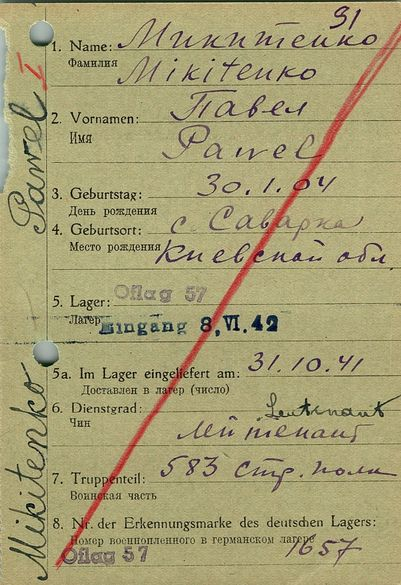 91
1. Name: Микитенко
Фамилия
Mikitenko
2. Vornamen: Павел
Имя
Pawel
3. Geburtstag: 30.1.04
День рождения
4. Geburtsort: с. Саварка
Место рождения Киевской обл.
5. Lager: Oflag 57
Лагерь
Eingang 8. VI. 42
5a. Im Lager eingeliefert am: 31.10.41
Доставлен в лагер (число)
6. Dienstgrad: Leutenant
Чин лейтенант
7. Truppenteil: 583 стр. полк
Воинская часть
8. Nr. der Erkennungsmarke des deutschen Lagers:
Номер военнопленного в германском лагере
Oflag 57 1657
Mikitenko Pawel